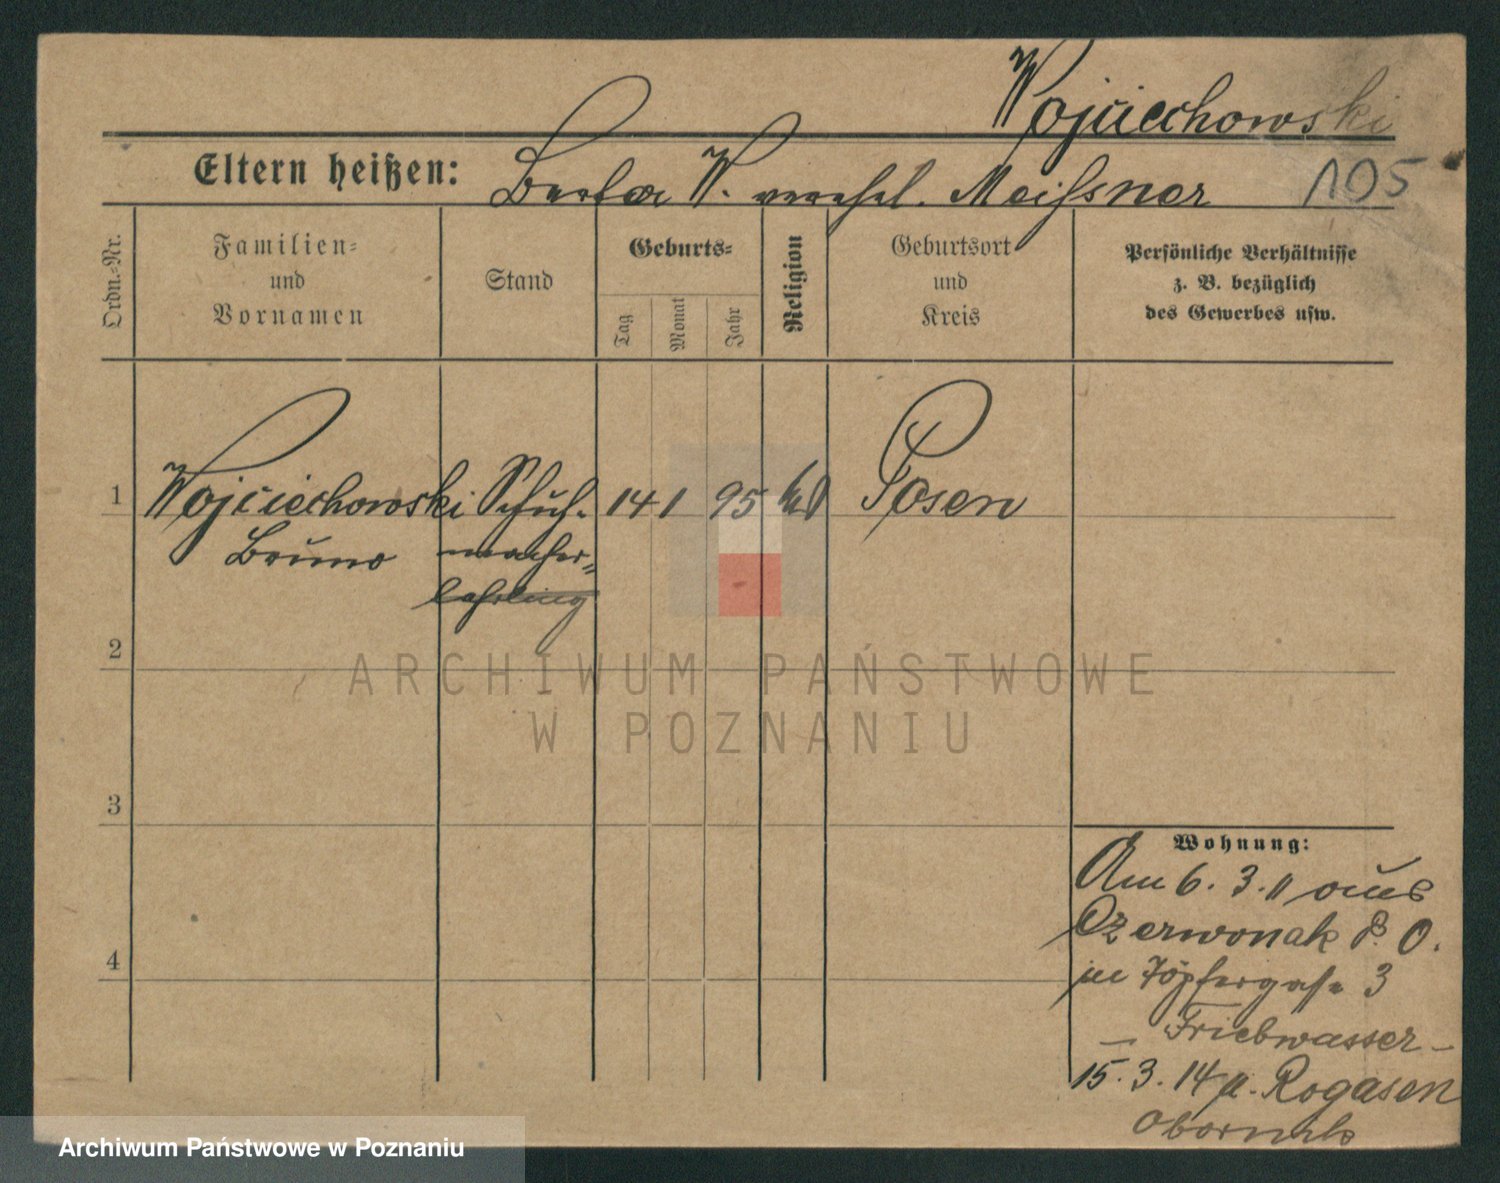 Wojciechowski
Eltern heißen: Berta W. verehel. Meißner 105
Ordn.-Nr.
Familien-
und
Vornamen
Stand
Geburts-
Tag
Monat
Jahr
Religion
Geburtsort
und
Kreis
Persönliche Verhältnisse
z. B. bezüglich
des Gewerbes usw.
1 Wojciechowski Schuh- 14 1 95 Posen
Bruno macher-
lehrling
2
3
4
Wohnung:
Am 6. 3. 11 aus
Czerwonak P. O.
in Töpfergasse 3
- Friebwasser -
15. 3. 14 n. Rogasen
Obornik
ARCHIWUM PAŃSTWOWE
W POZNANIU
Archiwum Państwowe w Poznaniu